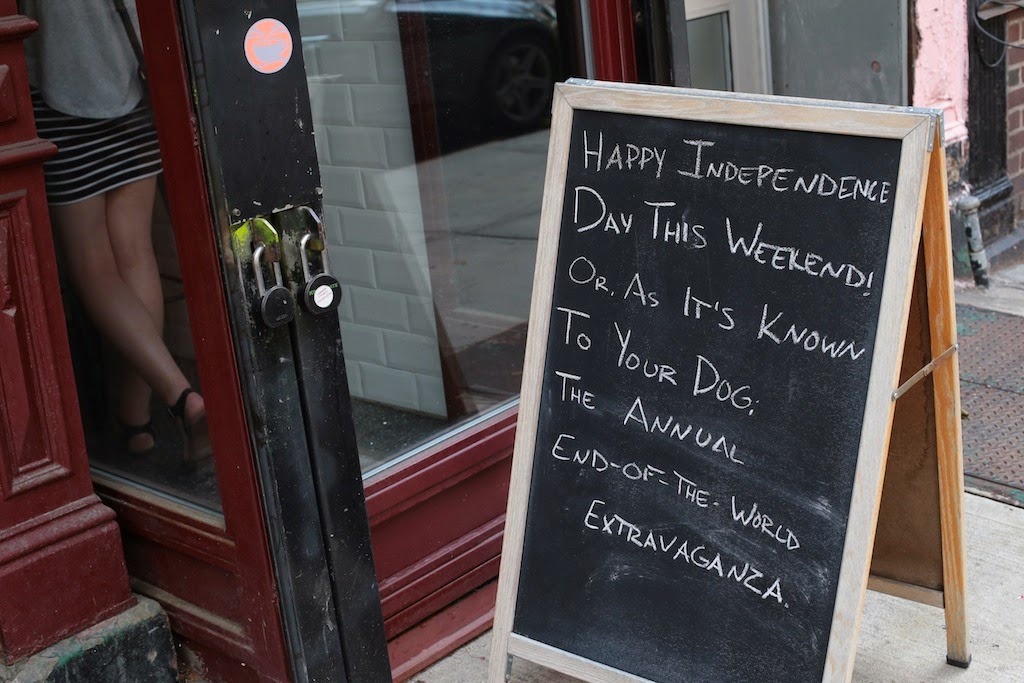 HAPPY INDEPENDENCE
DAY THIS WEEKEND!
OR, AS IT'S KNOWN
TO YOUR DOG:
THE ANNUAL
END-OF-THE-WORLD
EXTRAVAGANZA.